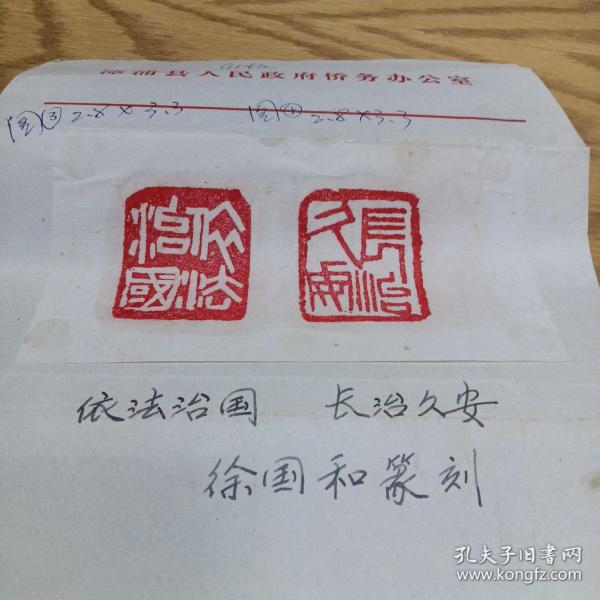 漳浦县人民政府侨务办公室
图③ 2.8×3.3 图④ 2.8×3.3
依法治國 長治久安
依法治国 长治久安
徐国和篆刻
孔夫子旧书网
www.kongfz.com